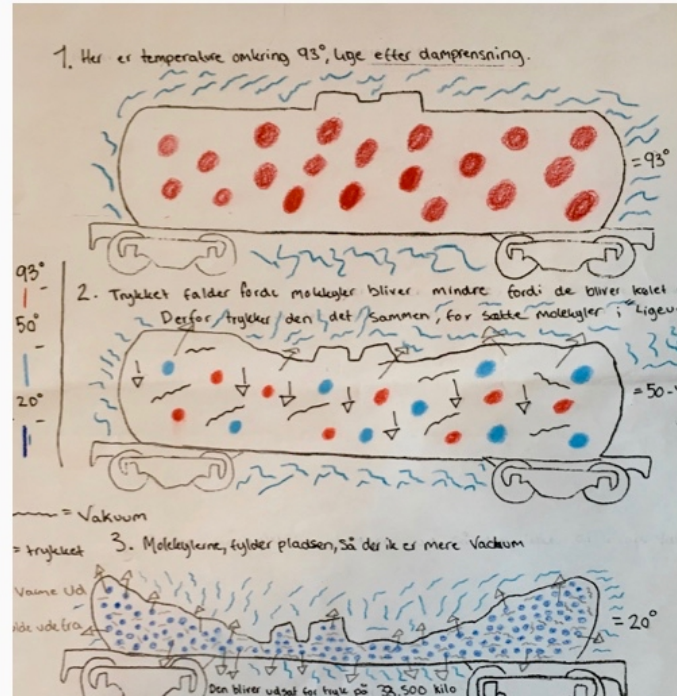 1. Her er temperature omkring 93°, lige efter damprensning.
= 93°
93°
50°
20°
2. Trykket falder fordi molekyler bliver mindre fordi de bliver kølet
Derfor trykker den det sammen, for sætte molekyler i "Ligev
= 50-
~ = Vakuum
= trykket
3. Molekylerne, fylder pladsen, så der ik er mere Vacuum
Varme ud
ude fra
= 20°
Den bliver udsat for tryk på 32,500 kilo